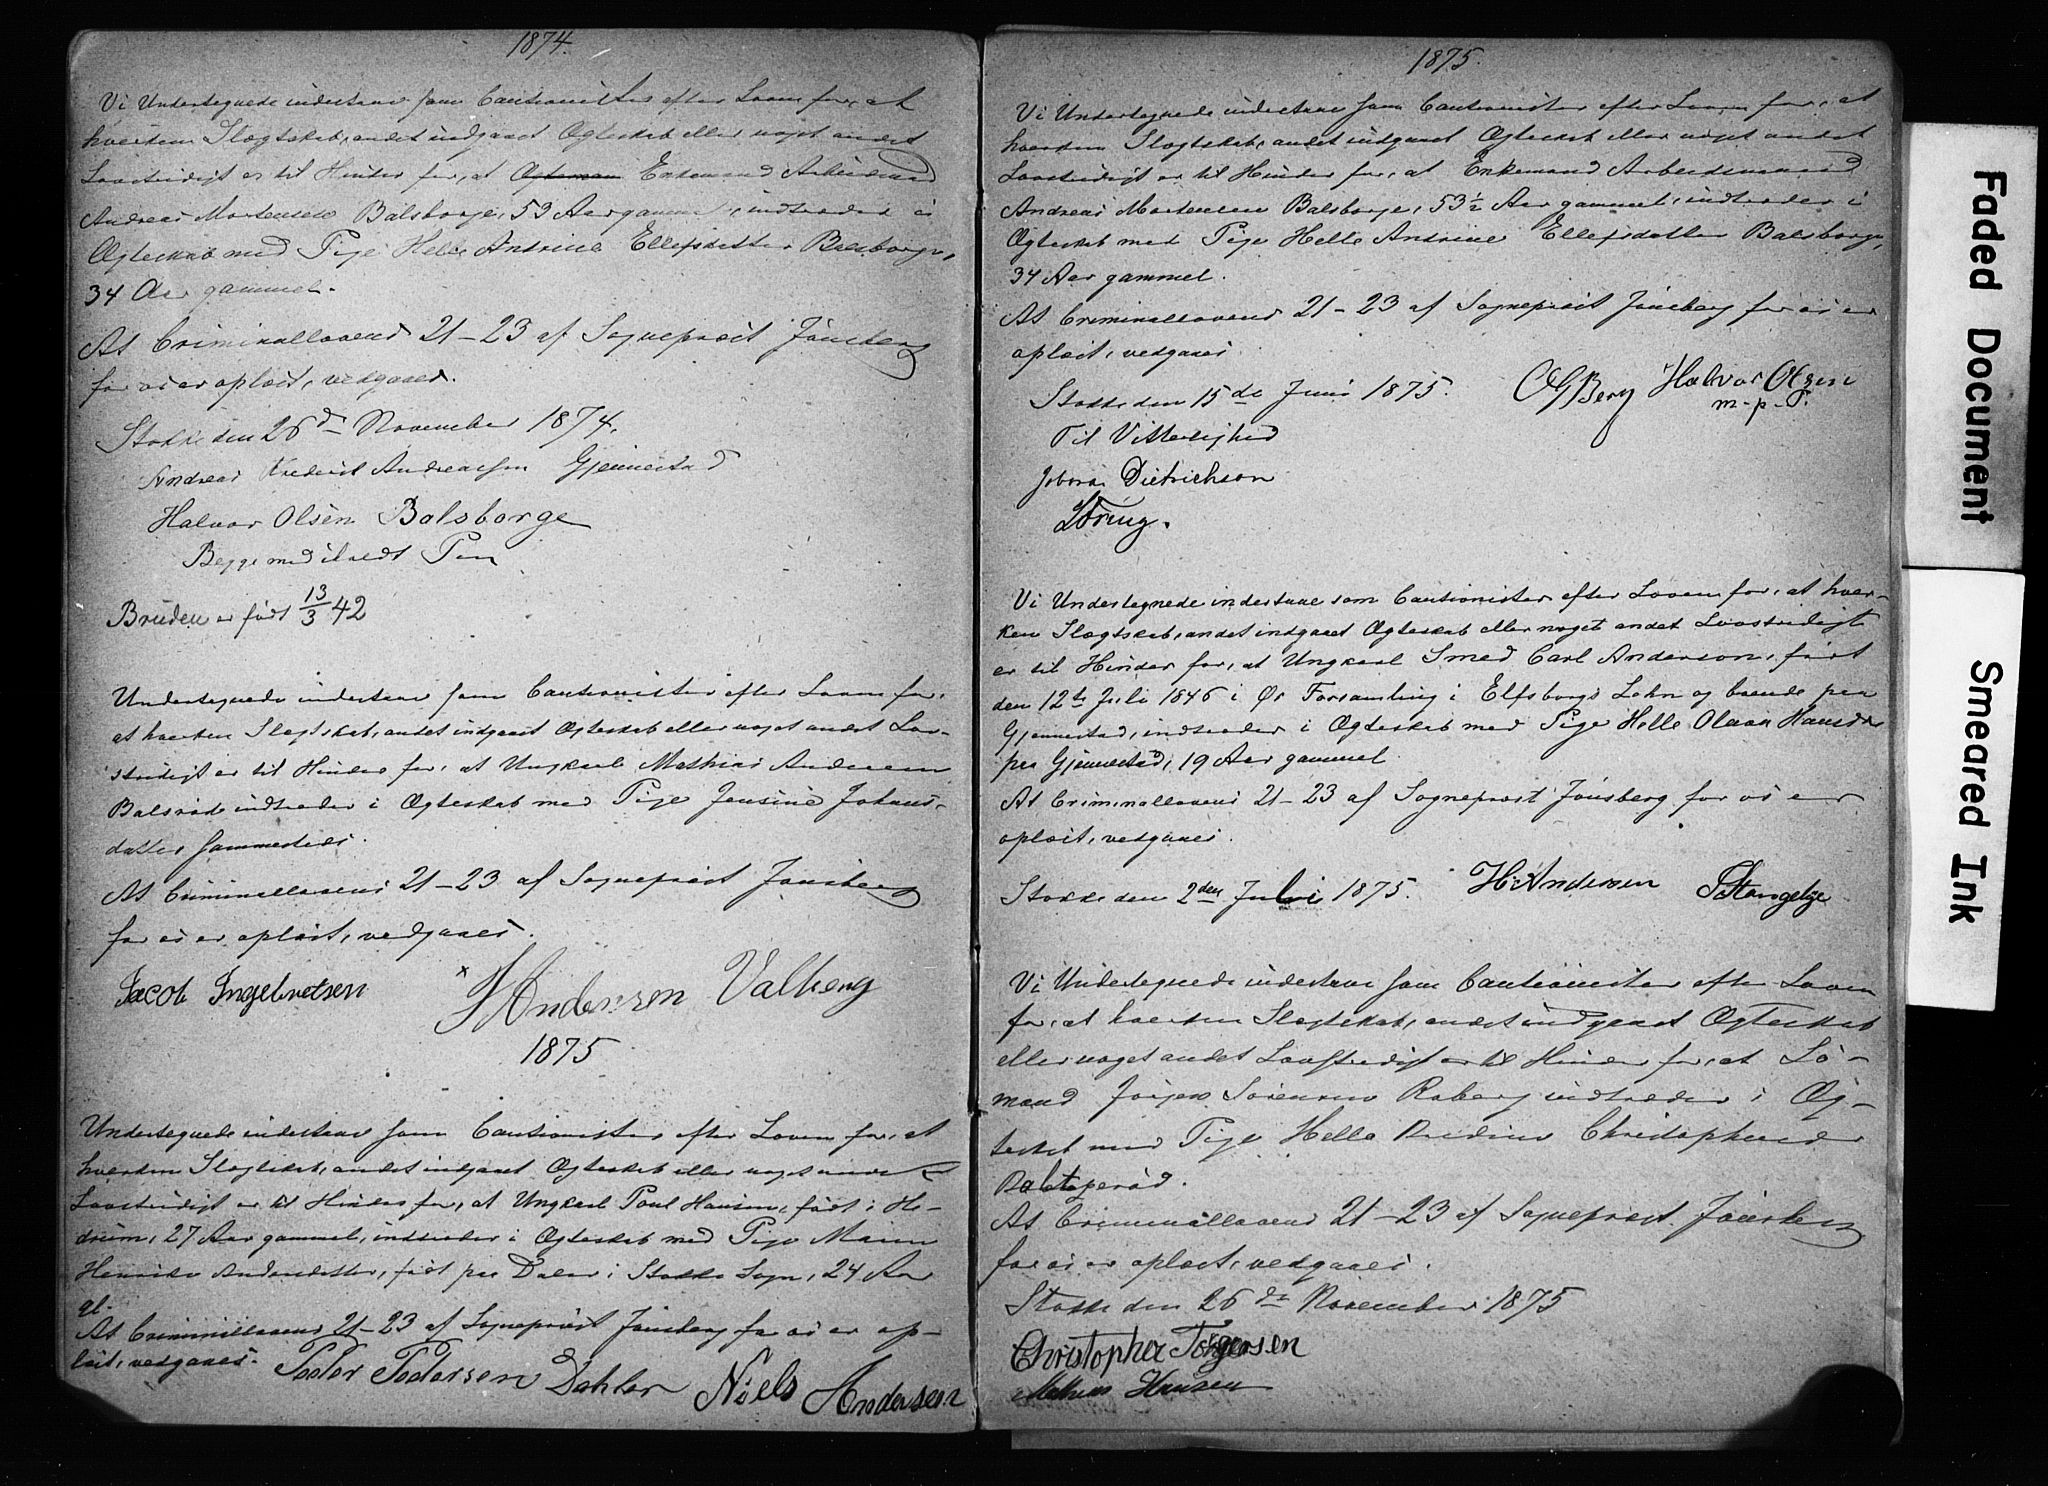 1874.
Vi Undertegnede indestaae som Cautionister efter Loven for, at
hverken Slægtskab, andet indgaaet Ægteskab eller noget andet
Lovstridigt er til Hinder for, at Enkemand Arbeidsmand
Andreas Mortensen Balsborge, 53 Aar gammel, indtræder i
Ægteskab med Pige Helle Andrine Ellefsdatter Balsborge,
34 Aar gammel.
At Criminallovens 21-23 af Sognepræst Jönsberg
for os er oplæst, vedgaaes.
Stokke den 26d November 1874.
Andreas Frederik Andreassen Gjennestad
Halvor Olsen Balsborge
Begge med iholdt Pen
Bruden er født 13/3 42
Undertegnede indestaae som Cautionister efter Loven for,
at hverken Slægtskab, andet indgaaet Ægteskab eller noget andet Lov-
stridigt er til Hinder for, at Ungkarl Mathias Andersen
Balsrøde indtræder i Ægteskab med Pige Jensine Johans-
datter sammesteds.
At Criminallovens 21-23 af Sognepræst Jönsberg
for os er oplæst, vedgaaes.
Jacob Ingebretsen x H Andersen Valberg
1875
Undertegnede indestaae som Cautionister efter Loven for, at
hverken Slægtskab, andet indgaaet Ægteskab eller noget andet
Lovstridigt er til Hinder for, at Ungkarl Poul Hansen, født i He-
drum, 27 Aar gammel, indtræder i Ægteskab med Pige Maren
Henrikke Andersdatter, født paa Dalen i Stokke Sogn, 24 Aar
gl.
At Criminallovens 21-23 af Sognepræst Jönsberg for os er op-
læst, vedgaaes. Peder Pedersen Dahler Niels Andersen
1875.
Vi Undertegnede indestaae som Cautionister efter Loven for, at
hverken Slægtskab, andet indgaaet Ægteskab eller noget andet
Lovstridigt er til Hinder for, at Enkemand Arbeidsmand
Andreas Mortensen Balsborge, 53½ Aar gammel, indtræder i
Ægteskab med Pige Helle Andrine Ellefsdatter Balsborge,
34 Aar gammel.
At Criminallovens 21-23 af Sognepræst Jönsberg for os er
oplæst, vedgaaes.
Stokke den 15de Juni 1875. O G Berg Halvor Olsen
m. p. P.
Til Vitterlighed
Dietrichson
Vi Undertegnede indestaae som Cautionister efter Loven for, at hver-
ken Slægtskab, andet indgaaet Ægteskab eller noget andet Lovstridigt
er til Hinder for, at Ungkarl Smed Carl Anderson, født
den 12te Juli 1846 i Ør Forsamling i Elfsborgs Lehn og boende paa
Gjennestad, indtræder i Ægteskab med Pige Helle Olava Hansdr
paa Gjennestad, 19 Aar gammel.
At Criminallovens 21-23 af Sognepræst Jönsberg for os er
oplæst, vedgaaes.
Stokke den 2den Julie 1875. H. Andersen
Vi Undertegnede indestaae som Cautionister efter Loven
for, at hverken Slægtskab, andet indgaaet Ægteskab
eller noget andet Lovstridigt er til Hinder for, at Sö-
mand Jörgen Sörensen Raberg indtræder i Æg-
teskab med Pige Helle Christophersdr
At Criminallovens 21-23 af Sognepræst Jönsberg
for os er oplæst, vedgaaes.
Stokke den 26de November 1875
Christopher Torgersen
Mathias Hansen
Faded Document
Smeared Ink